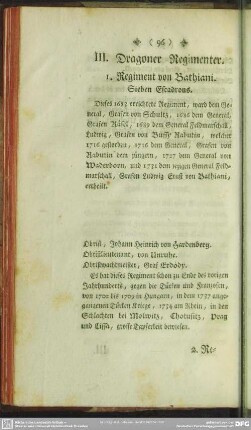 ( 96 )
III. Dragoner Regimenter.
1. Regiment von Bathiani.
Sieben Escadrons.
Dieses 1683 errichtete Regiment, ward dem Ge-
neral, Grafen von Schultz, 1688 dem General,
Grafen 1689 dem General Feldmarschall,
Ludwig, Grafen von Bussy Rabutin, welcher
1716 gestorben, 1716 dem General, Grafen von
Rabutin dem jüngern, 1727 dem General von
und 1731 dem jetzigen General Feld-
marschall, Grafen Ludwig Ernst von Bathiani,
ertheilt.
Obrist, Johann Heinrich von Hardenberg.
Obristlieutenant, von Unruhe.
Obristwachtmeister, Graf Erdödy.
Es hat dieses Regiment schon zu Ende des vorigen
Jahrhunderts, gegen die Türken und Franzosen,
von 1701 bis 1709 in Hungarn, in dem 1737 ange-
gangenen Türken Kriege, 1734 am Rhein, in den
Schlachten bey Molwitz, Chotusitz, Prag
und Lissa, grosse Tapferkeit bewiesen.
2. Re-